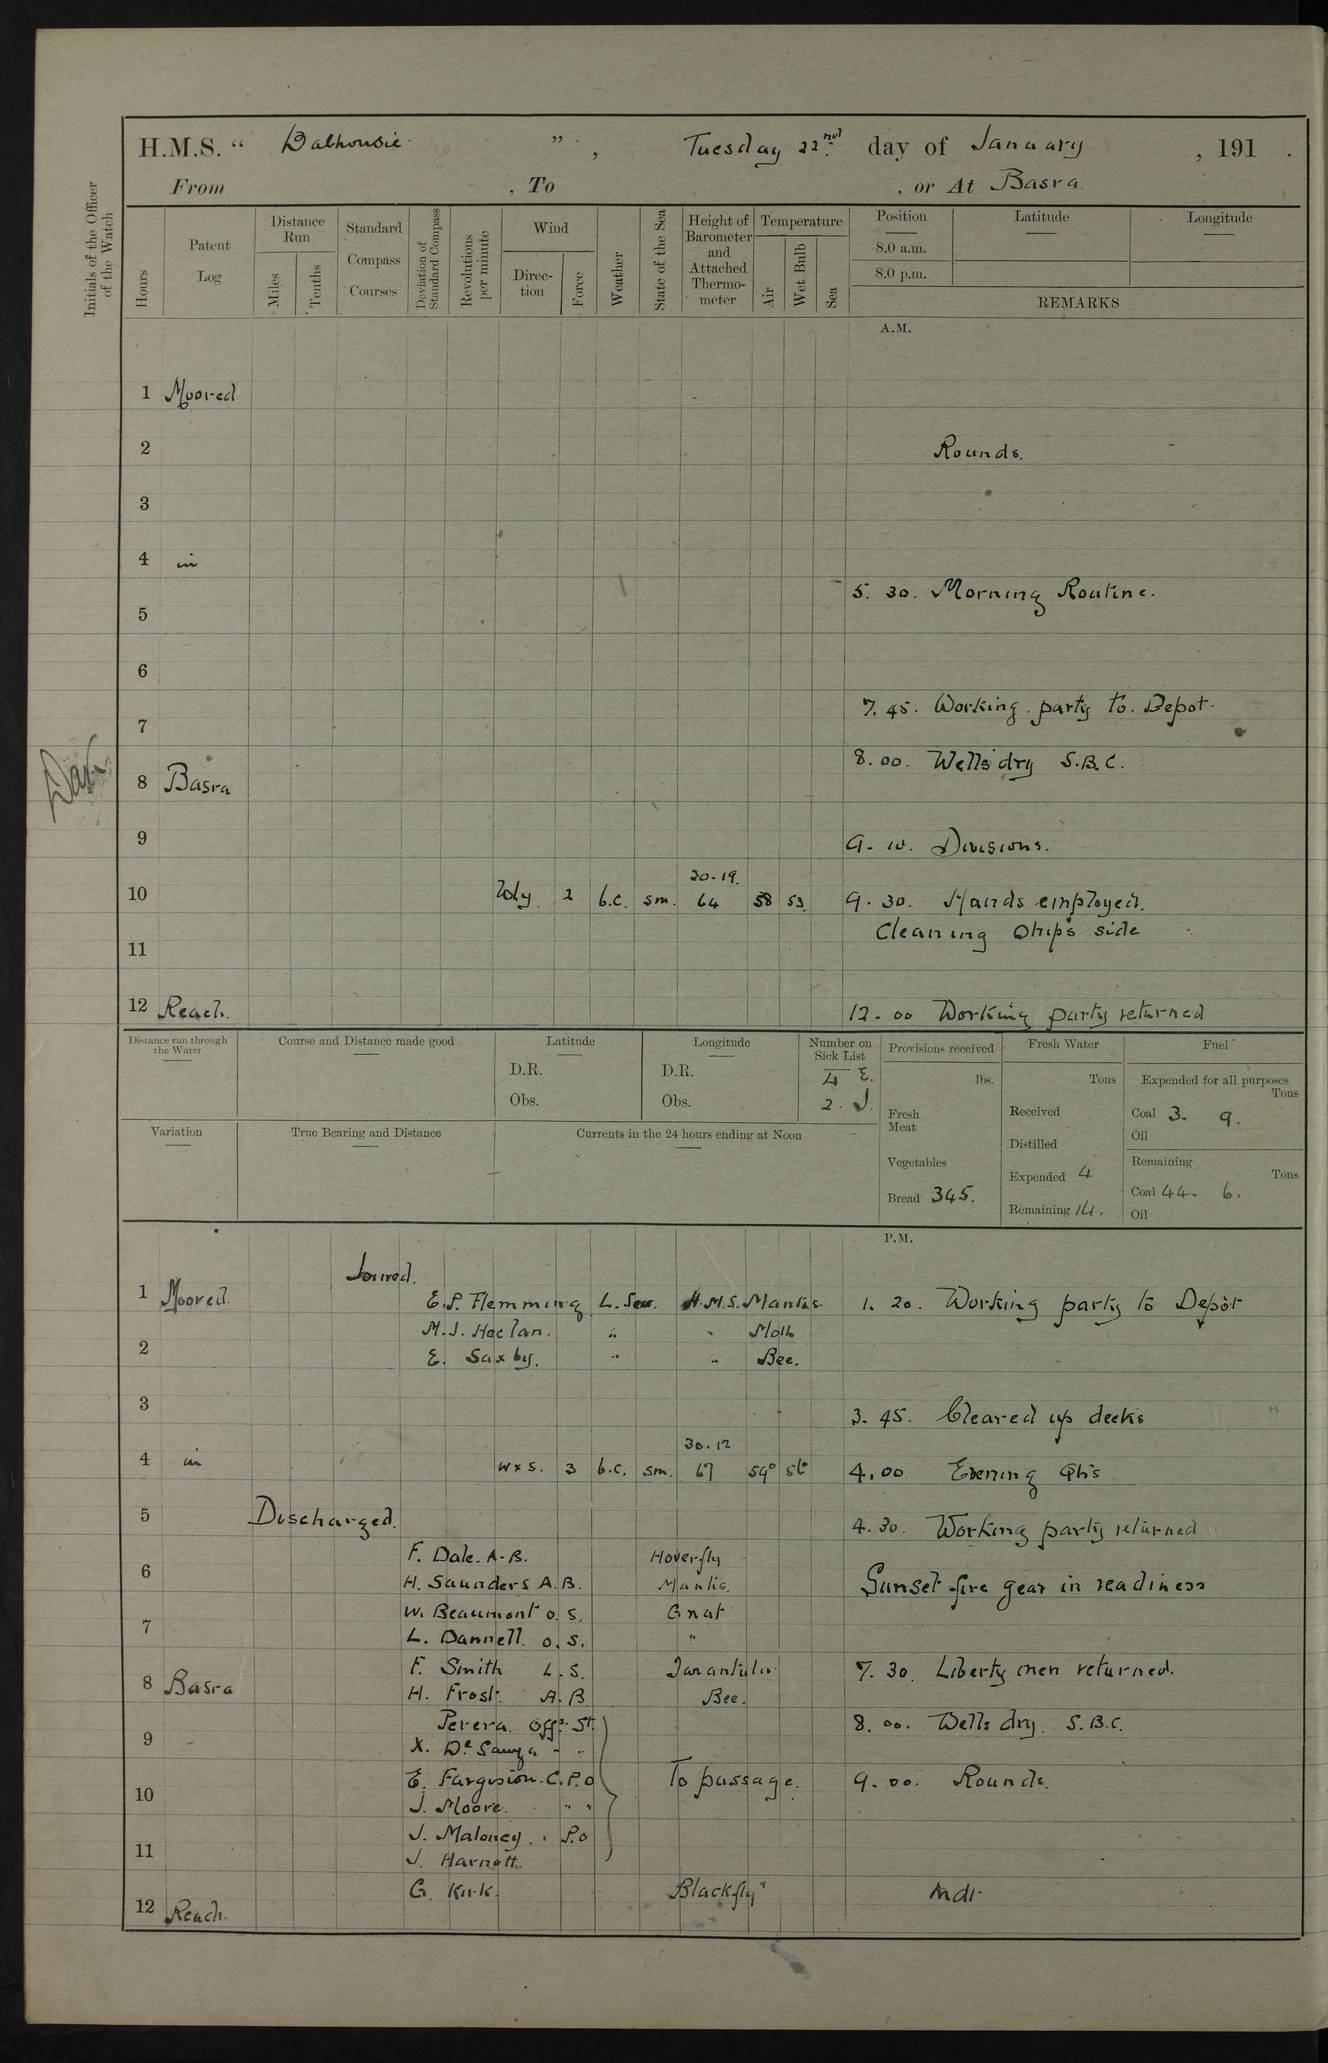 H.M.S. “ Dalhousie ” , Tuesday 22nd day of January , 191 .
From , To , or At Basra
Initials of the Officer of the Watch
Hours
Patent Log
Distance Run
Miles
Tenths
Standard Compass Courses
Deviation of Standard Compass
Revolutions per minute
Wind
Direc-tion
Force
Weather
State of the Sea
Height of Barometer and Attached Thermo-meter
Temperature
Air
Wet Bulb
Sea
Position Latitude Longitude
8.0 a.m.
8.0 p.m.
REMARKS
A.M.
1 Moored
2 Rounds.
3
4 in
5. 30. Morning Routine.
5
6
7. 45. Working party to Depot.
7
8. 00. Wells dry S.B.C.
8 Basra
9
9. 10. Divisions.
30.19.
10 2 b.c. sm. 64 58 53 9. 30. Hands employed.
Cleaning Ship's side
11
12 Reach. 12.00 Working party returned
Distance run through the Water
Course and Distance made good
Latitude
D.R.
Obs.
Longitude
D.R.
Obs.
Number on Sick List
4 E.
2. I.
Provisions received
lbs.
Fresh Meat
Vegetables
Bread 345.
Fresh Water
Tons
Received
Distilled
Expended 4
Remaining 14.
Fuel
Expended for all purposes
Tons
Coal 3. 9.
Oil
Remaining
Tons
Coal 44. 6.
Oil
Variation
True Bearing and Distance
Currents in the 24 hours ending at Noon
P.M.
Joined.
1 Moored. E.P. Flemming L. Sea. H.M.S. Mantis 1. 20. Working party to Depôt
M.J. " " Moth
2
E. Saxby. " " Bee.
3
3. 45. Cleared up decks
30.12
4 in W x S. 3 b.c. sm. 67 59° 4.00 Evening Qtrs
5 Discharged. 4.30. Working party returned
F. Dale. A.B. Hoverfly
6 H. Saunders A.B. Mantis. Sunset fire gear in readiness
W. Beaumont O.S. Gnat
7
L. Dannell. O.S. "
F. Smith L.S. Tarantula 7. 30. Liberty men returned.
8 Basra
H. Frost. A.B. Bee.
Perera. Offrs. St. 8. 00. Wells dry. S.B.C.
9
X. De Souza " "
E. Fargusion. C.P.O To passage. 9.00. Rounds.
10
J. Moore. " "
J. Maloney. P.O
11
J. Harnett.
G. Kirk. Blackfly" Mdt.
12 Reach.